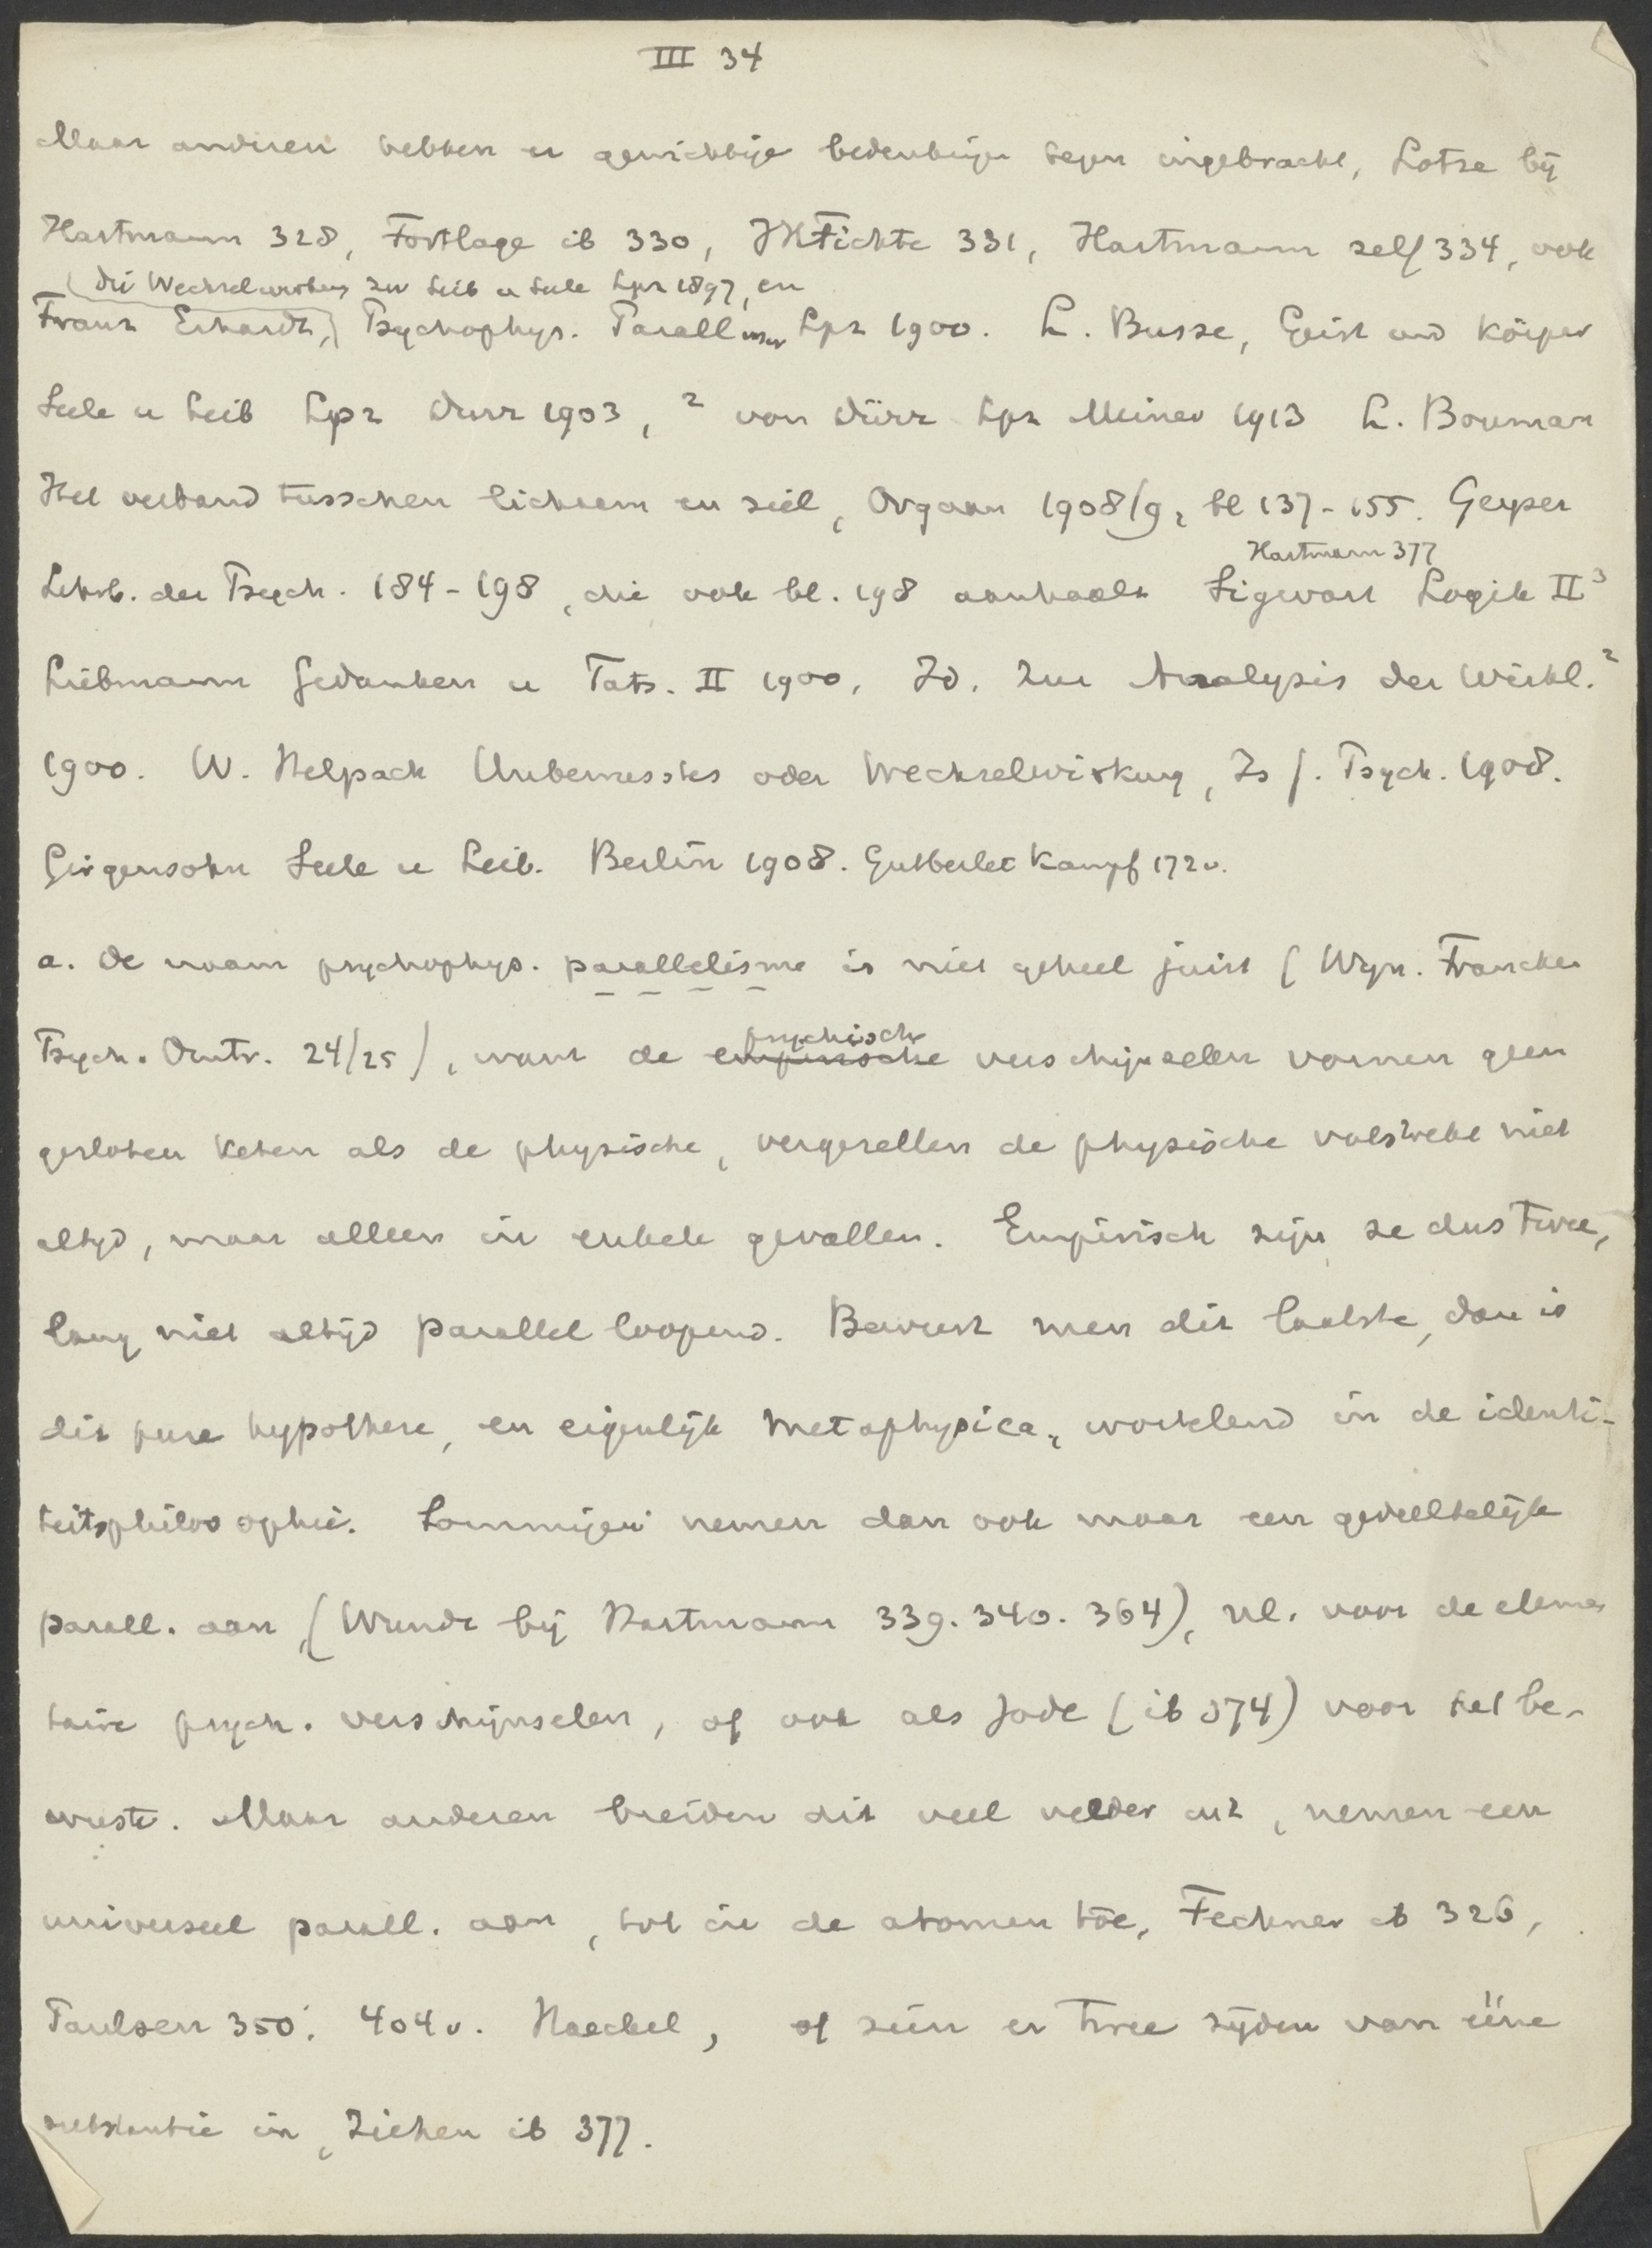 III 34
Maar anderen hebben er gewichtige bedenkingen tegen ingebracht, Lotze bij
Hartmann 328, Fortlage ib 330, JHFichte 331, Hartmann zelf 334, ook
(Die Wechselwirkung zw Leib u Seele Lpz 1897, en
Franz Erhardt,) Psychophys. Parallismus Lpz 1900. L. Busse, Geist und Körper
Seele u Leib Lpz Durr 1903, ² von Dürr Lpz Meiner 1913 L. Bouman
Het verband tusschen lichaam en ziel, Orgaan 1908/9, bl 137-155. Geyser
Hartmann 377
Lehrb. der Psych. 184-198, die ook bl. 198 aanhaalt Sigwart Logik II³
Liebmann Gedanken u Tats. II 1900, Id. Zur Analysis der Wirkl.²
1900. W. Helpach Unbewusstes oder Wechselwirkung, Zs f. Psych. 1908.
Girgensohn Seele u Leib. Berlin 1908. Gutberlet Kampf 172v.
a. De naam psychophys. parallelisme is niet geheel juist (Wyn. Francken
psychische
Psych. Omtr. 24/25), want de empirische verschijnselen vormen geen
gesloten keten als de physische, vergezellen de physische volstrekt niet
altyd, maar alleen in enkele gevallen. Empirisch zijn ze dus twee,
lang niet altijd parallel loopend. Beweert men dit laatste, dan is
dit pure hypothese, en eigenlijk metaphysica, wortelend in de identi-
teitsphilosophie. Sommigen nemen dan ook maar een gedeeltelijk
parall. aan, (Wundt bij Hartmann 339. 340. 364), nl. voor de elemen
taire psych. verschijnselen, of ook als Jodl (ib 374) voor het be-
wuste. Maar anderen breiden dit veel verder uit, nemen een
universeel parall. aan, tot in de atomen toe, Fechner ib 326,
Paulsen 350. 404v. Haeckel, of zien er twee zijden van ééne
substantie in, Ziehen ib 377.